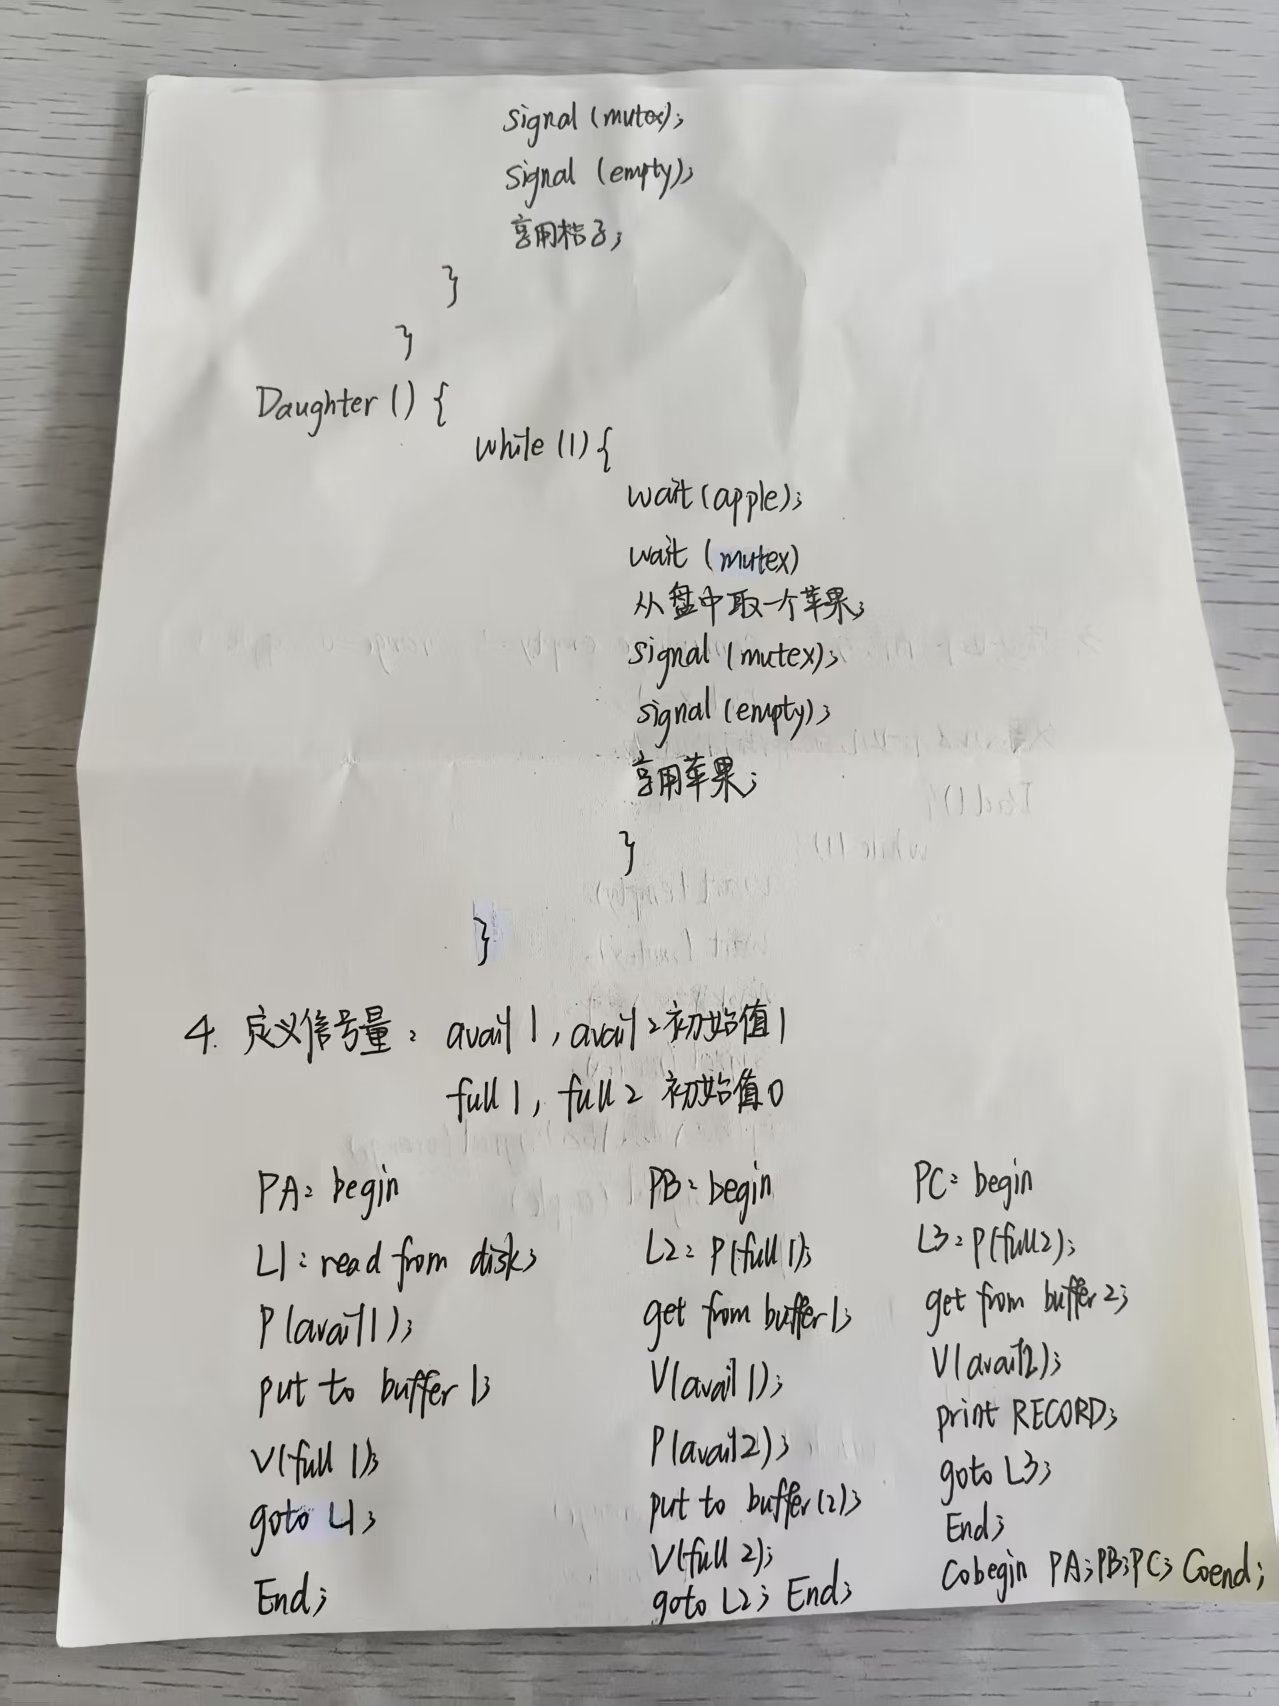 signal (mutex);
signal (empty);
享用桔子;
}
}
Daughter () {
while (1) {
wait (apple);
wait (mutex)
从盘中取一个苹果;
signal (mutex);
signal (empty);
享用苹果;
}
}
4. 定义信号量: avail 1, avail 2 初始值 1
full 1, full 2 初始值 0
PA: begin
L1: read from disk;
P(avail 1);
put to buffer 1;
V(full 1);
goto L1;
End;
PB: begin
L2: P(full 1);
get from buffer 1;
V(avail 1);
P(avail 2);
put to buffer (2);
V(full 2);
goto L2; End;
PC: begin
L3: P(full 2);
get from buffer 2;
V(avail 2);
print RECORD;
goto L3;
End;
Cobegin PA; PB; PC; Coend;